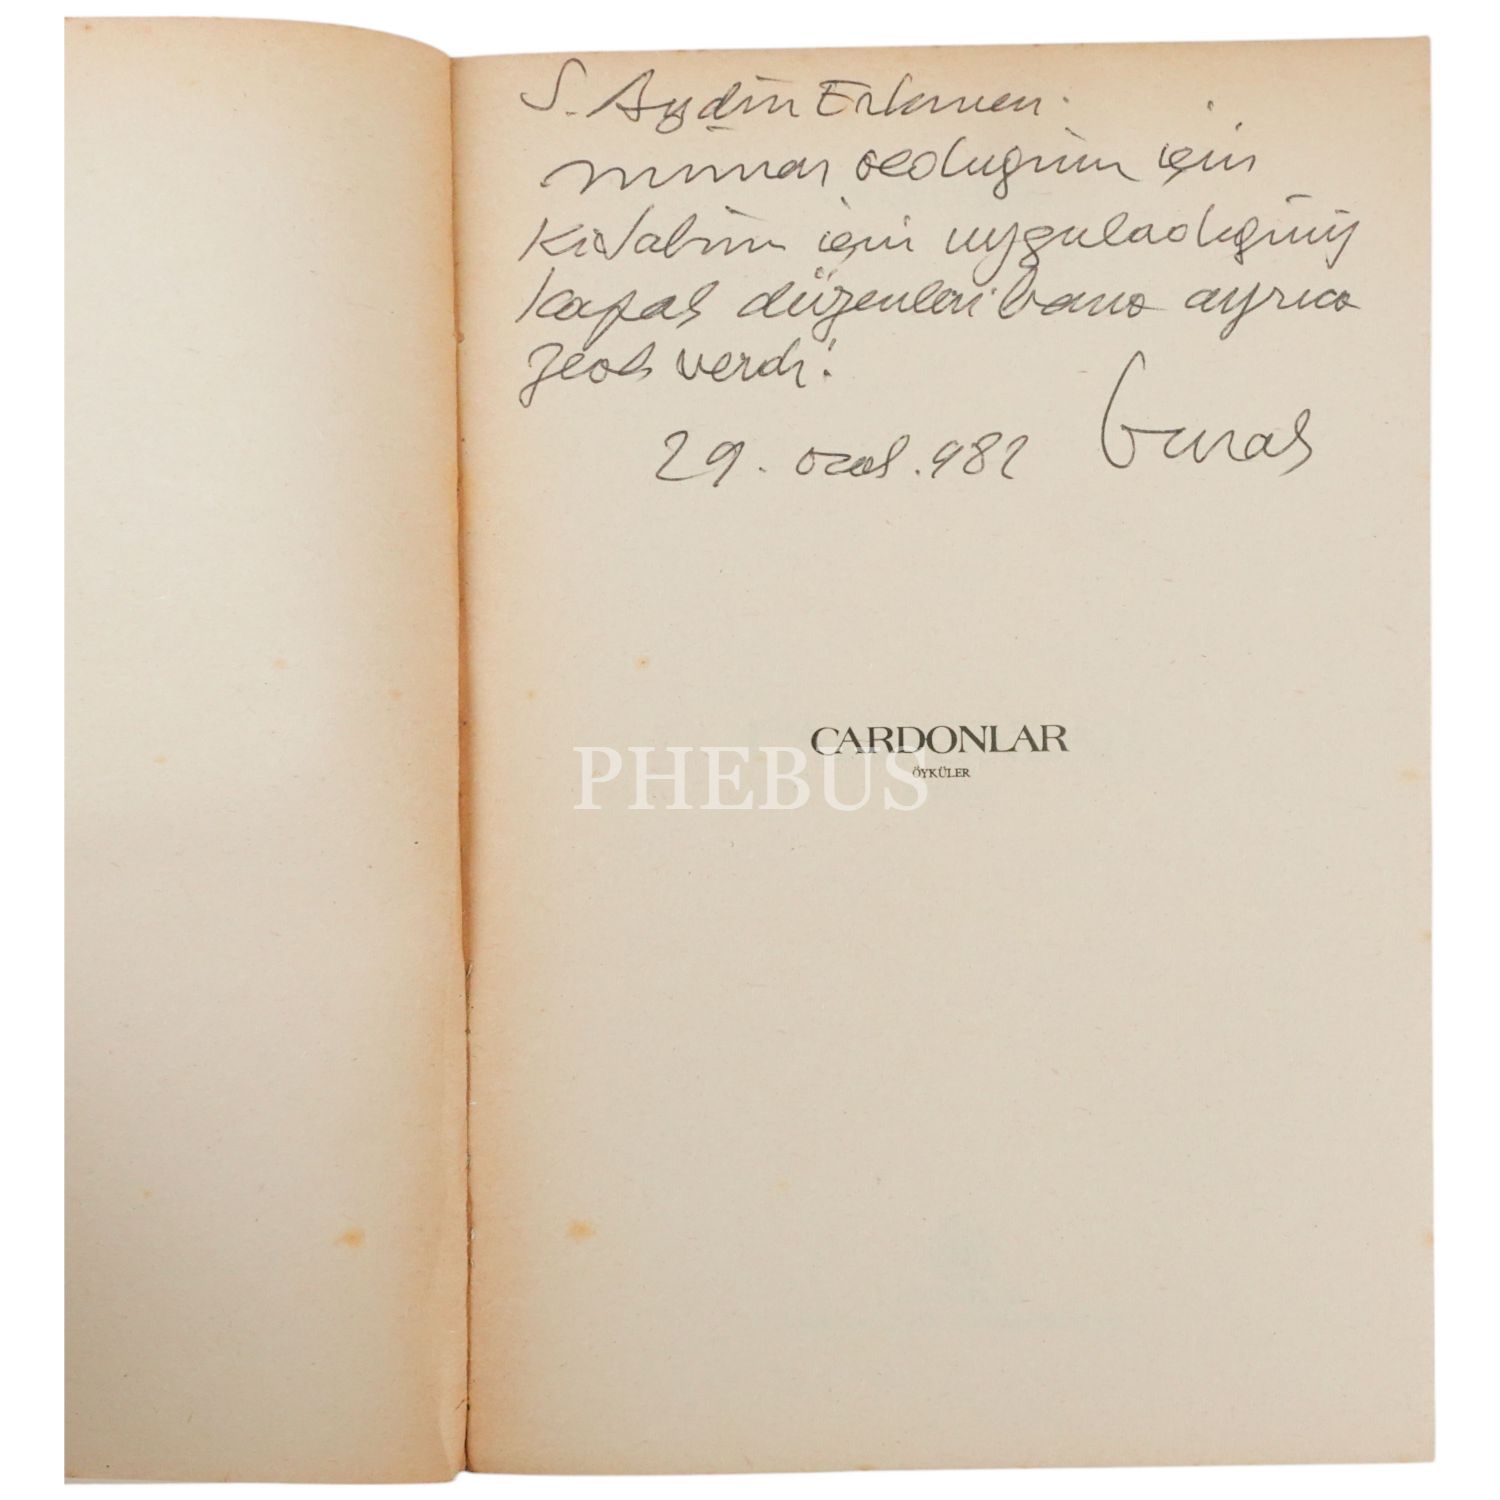 S. Aydın Erkmen.
mimar olduğum için
kitabım için uyguladığınız
kapak düzenleri bana ayrıca
zevk verdi.
29. ocak. 982
Burak
CARDONLAR
ÖYKÜLER
PHEBUS